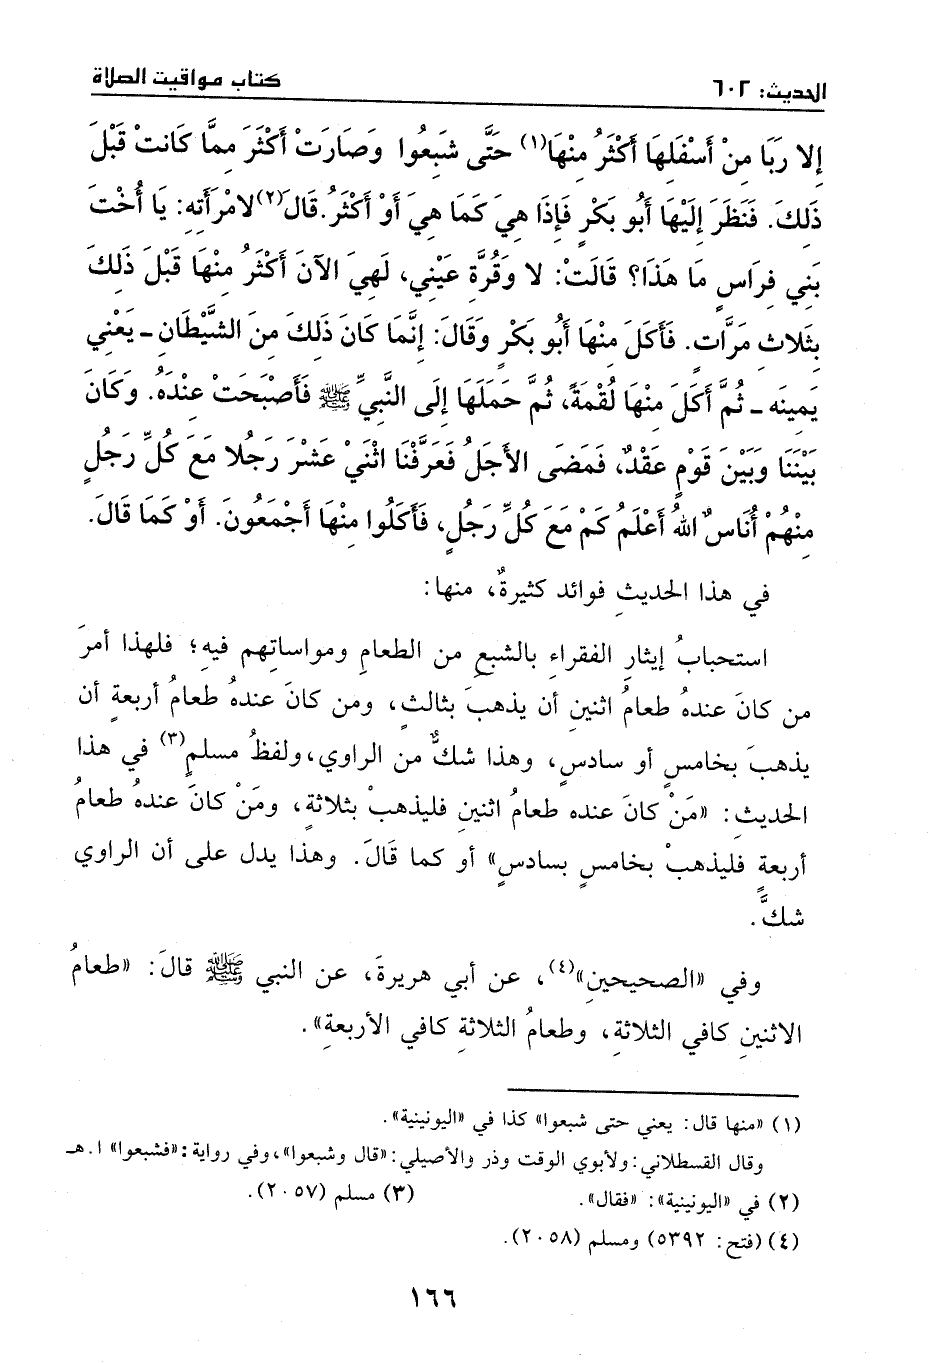 الحديث: ٦٠٢ كتاب مواقيت الصلاة
إِلا رَبَا مِنْ أَسْفَلِهَا أَكْثَرُ مِنْهَا(١) حَتَّى شَبِعُوا وَصَارَتْ أَكْثَرَ مِمَّا كَانَتْ قَبْلَ
ذَلِكَ. فَنَظَرَ إِلَيْهَا أَبُو بَكْرٍ فَإِذَا هِيَ كَمَا هِيَ أَوْ أَكْثَرُ. قَالَ(٢) لامْرَأَتِهِ: يَا أُخْتَ
بَنِي فِرَاسٍ مَا هَذَا؟ قَالَتْ: لا وَقُرَّةِ عَيْنِي، لَهِيَ الآنَ أَكْثَرُ مِنْهَا قَبْلَ ذَلِكَ
بِثَلاثِ مَرَّاتٍ. فَأَكَلَ مِنْهَا أَبُو بَكْرٍ وَقَالَ: إِنَّمَا كَانَ ذَلِكَ مِنَ الشَّيْطَانِ ـ يَعْنِي
يَمِينَه ـ ثُمَّ أَكَلَ مِنْهَا لُقْمَةً، ثُمَّ حَمَلَهَا إِلَى النَّبِيِّ ﷺ فَأَصْبَحَتْ عِنْدَهُ. وَكَانَ
بَيْنَنَا وَبَيْنَ قَوْمٍ عَقْدٌ، فَمَضَى الأَجَلُ فَعَرَّفْنَا اثْنَيْ عَشْرَ رَجُلا مَعَ كُلِّ رَجُلٍ
مِنْهُمْ أُنَاسٌ اللهُ أَعْلَمُ كَمْ مَعَ كُلِّ رَجُلٍ، فَأَكَلُوا مِنْهَا أَجْمَعُونَ. أَوْ كَمَا قَالَ.
في هذا الحديثِ فوائد كثيرةٌ، منها:
استحبابُ إيثارِ الفقراءِ بالشبعِ من الطعامِ ومواساتِهم فيهِ؛ فلهذا أمرَ
من كانَ عندهُ طعامُ اثنينِ أن يذهبَ بثالثٍ، ومن كانَ عندهُ طعامُ أربعةٍ أن
يذهبَ بخامسٍ أو سادسٍ، وهذا شكٌّ من الراوي، ولفظُ مسلمٍ(٣) في هذا
الحديثِ: «مَنْ كانَ عنده طعامُ اثنينِ فليذهبْ بثلاثةٍ، ومَنْ كانَ عندهُ طعامُ
أربعةٍ فليذهبْ بخامسٍ بسادسٍ» أو كما قَالَ. وهذا يدل على أن الراوي
شكَّ.
وفي «الصحيحينِ»(٤)، عن أبي هريرةَ، عن النبي ﷺ قالَ: «طعامُ
الاثنينِ كافي الثلاثةِ، وطعامُ الثلاثةِ كافي الأربعةِ».
(١) «منها قال: يعني حتى شبعوا» كذا في «اليونينية».
وقال القسطلاني: ولأبوي الوقت وذر والأصيلي: «قال وشبعوا»، وفي رواية: «فشبعوا» ا. هـ
(٢) في «اليونينية»: «فقال». (٣) مسلم (٢٠٥٧).
(٤) (فتح: ٥٣٩٢) ومسلم (٢٠٥٨).
١٦٦